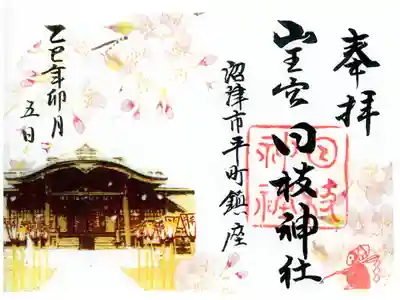 奉拝
山王宮日枝神社
沼津市平町鎮座
乙巳年卯月
五日
日枝
神社